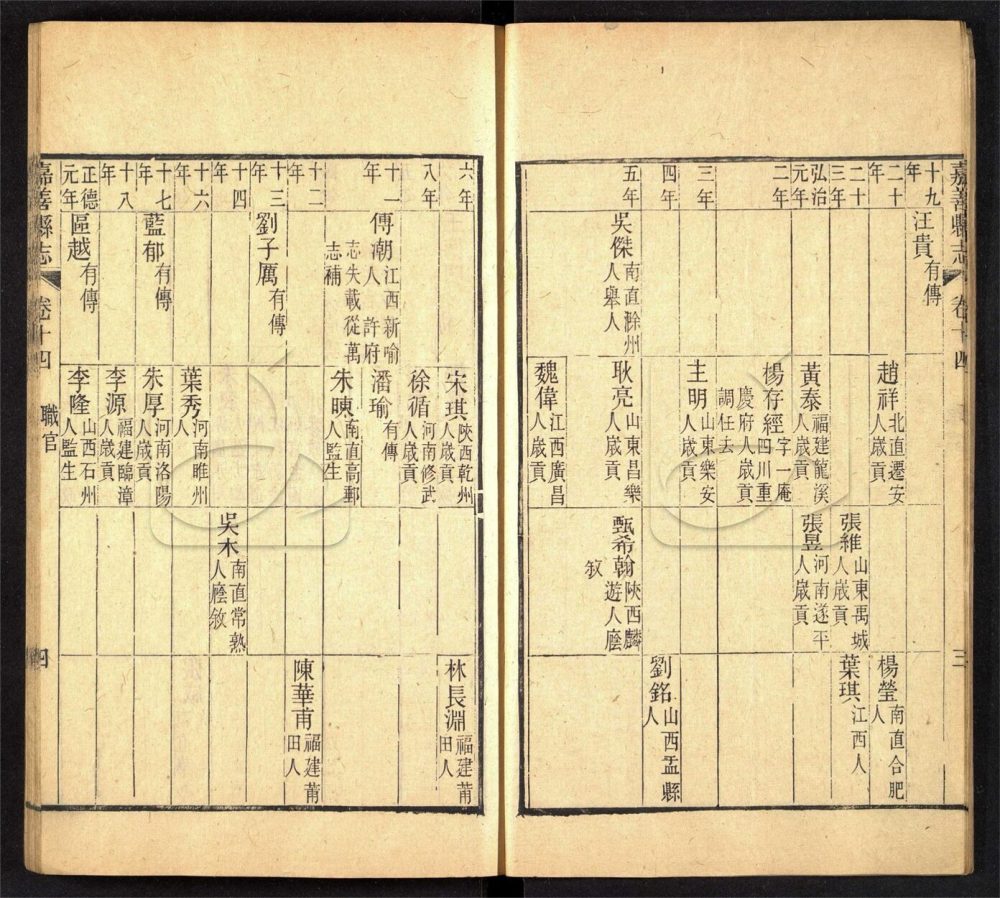 嘉善縣志 卷十四 三
十九年
汪貴有傳
二十年
趙祥北直遷安人歲貢
楊瑩南直合肥人
二十三年
張維山東禹城人歲貢
葉琪江西人
弘治元年
黃泰福建龍溪人歲貢
張昱河南遂平人歲貢
二年
楊存經字一庵四川重慶府人歲貢調任去
三年
主明山東樂安人歲貢
四年
劉銘山西盂縣人
五年
吳傑南直滁州人舉人
耿亮山東昌樂人歲貢
甄希翰陝西麟遊人廕敘
魏偉江西廣昌人歲貢
六年
宋琪陝西乾州人歲貢
林長淵福建莆田人
八年
徐循河南修武人歲貢
十一年
傅潮江西新喻人許府志失載從萬志補
潘瑜有傳
朱暕南直高郵人監生
十二年
陳華甫福建莆田人
十三年
劉子厲有傳
十四年
吳木南直常熟人廕敘
十六年
葉秀河南睢州人
十七年
藍郁有傳
朱厚河南洛陽人歲貢
十八年
李源福建臨漳人歲貢
正德元年
區越有傳
李隆山西石州人監生
嘉善縣志 卷十四 職官 四